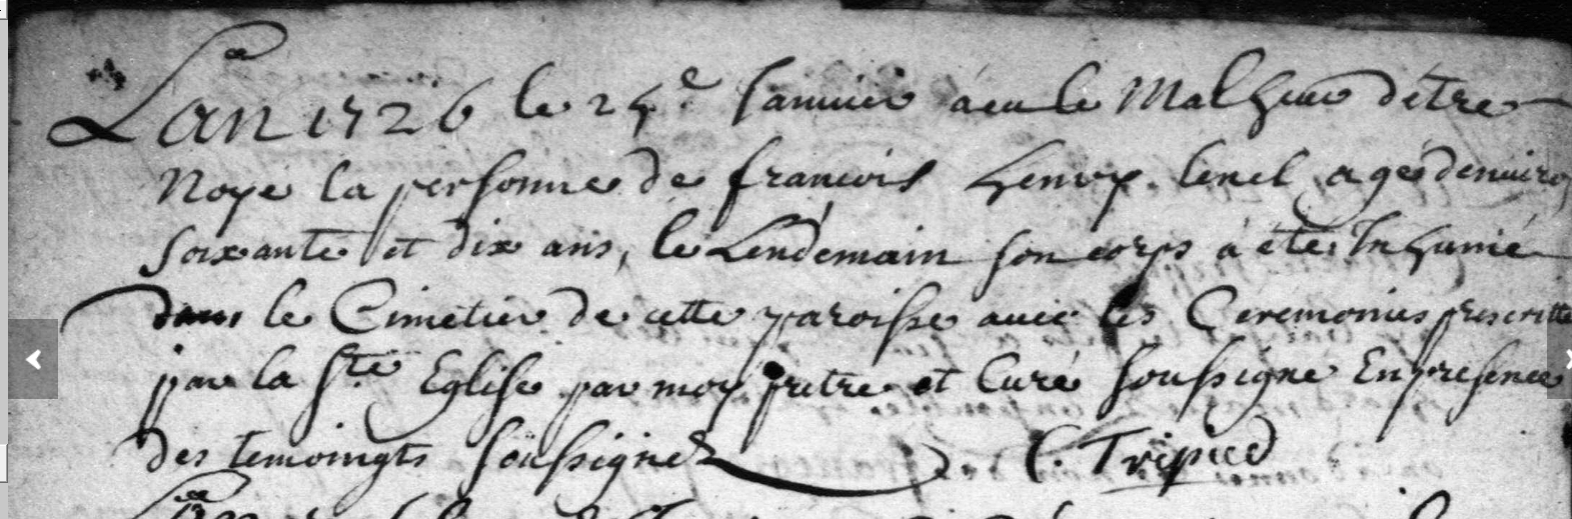 L'an 1726 le 25e Januier a eu le Malheur d'être
Noyé la personne de francois henry agé denuiron
soixante et dix ans, le Lendemain son corps à été Inhumé
dans le Cimetier de cette paroisse auec les Ceremonies prescritte
par la Ste Eglise par moy pretre et Curé soussigné En presence
des temoingts soussignez C. Tripied